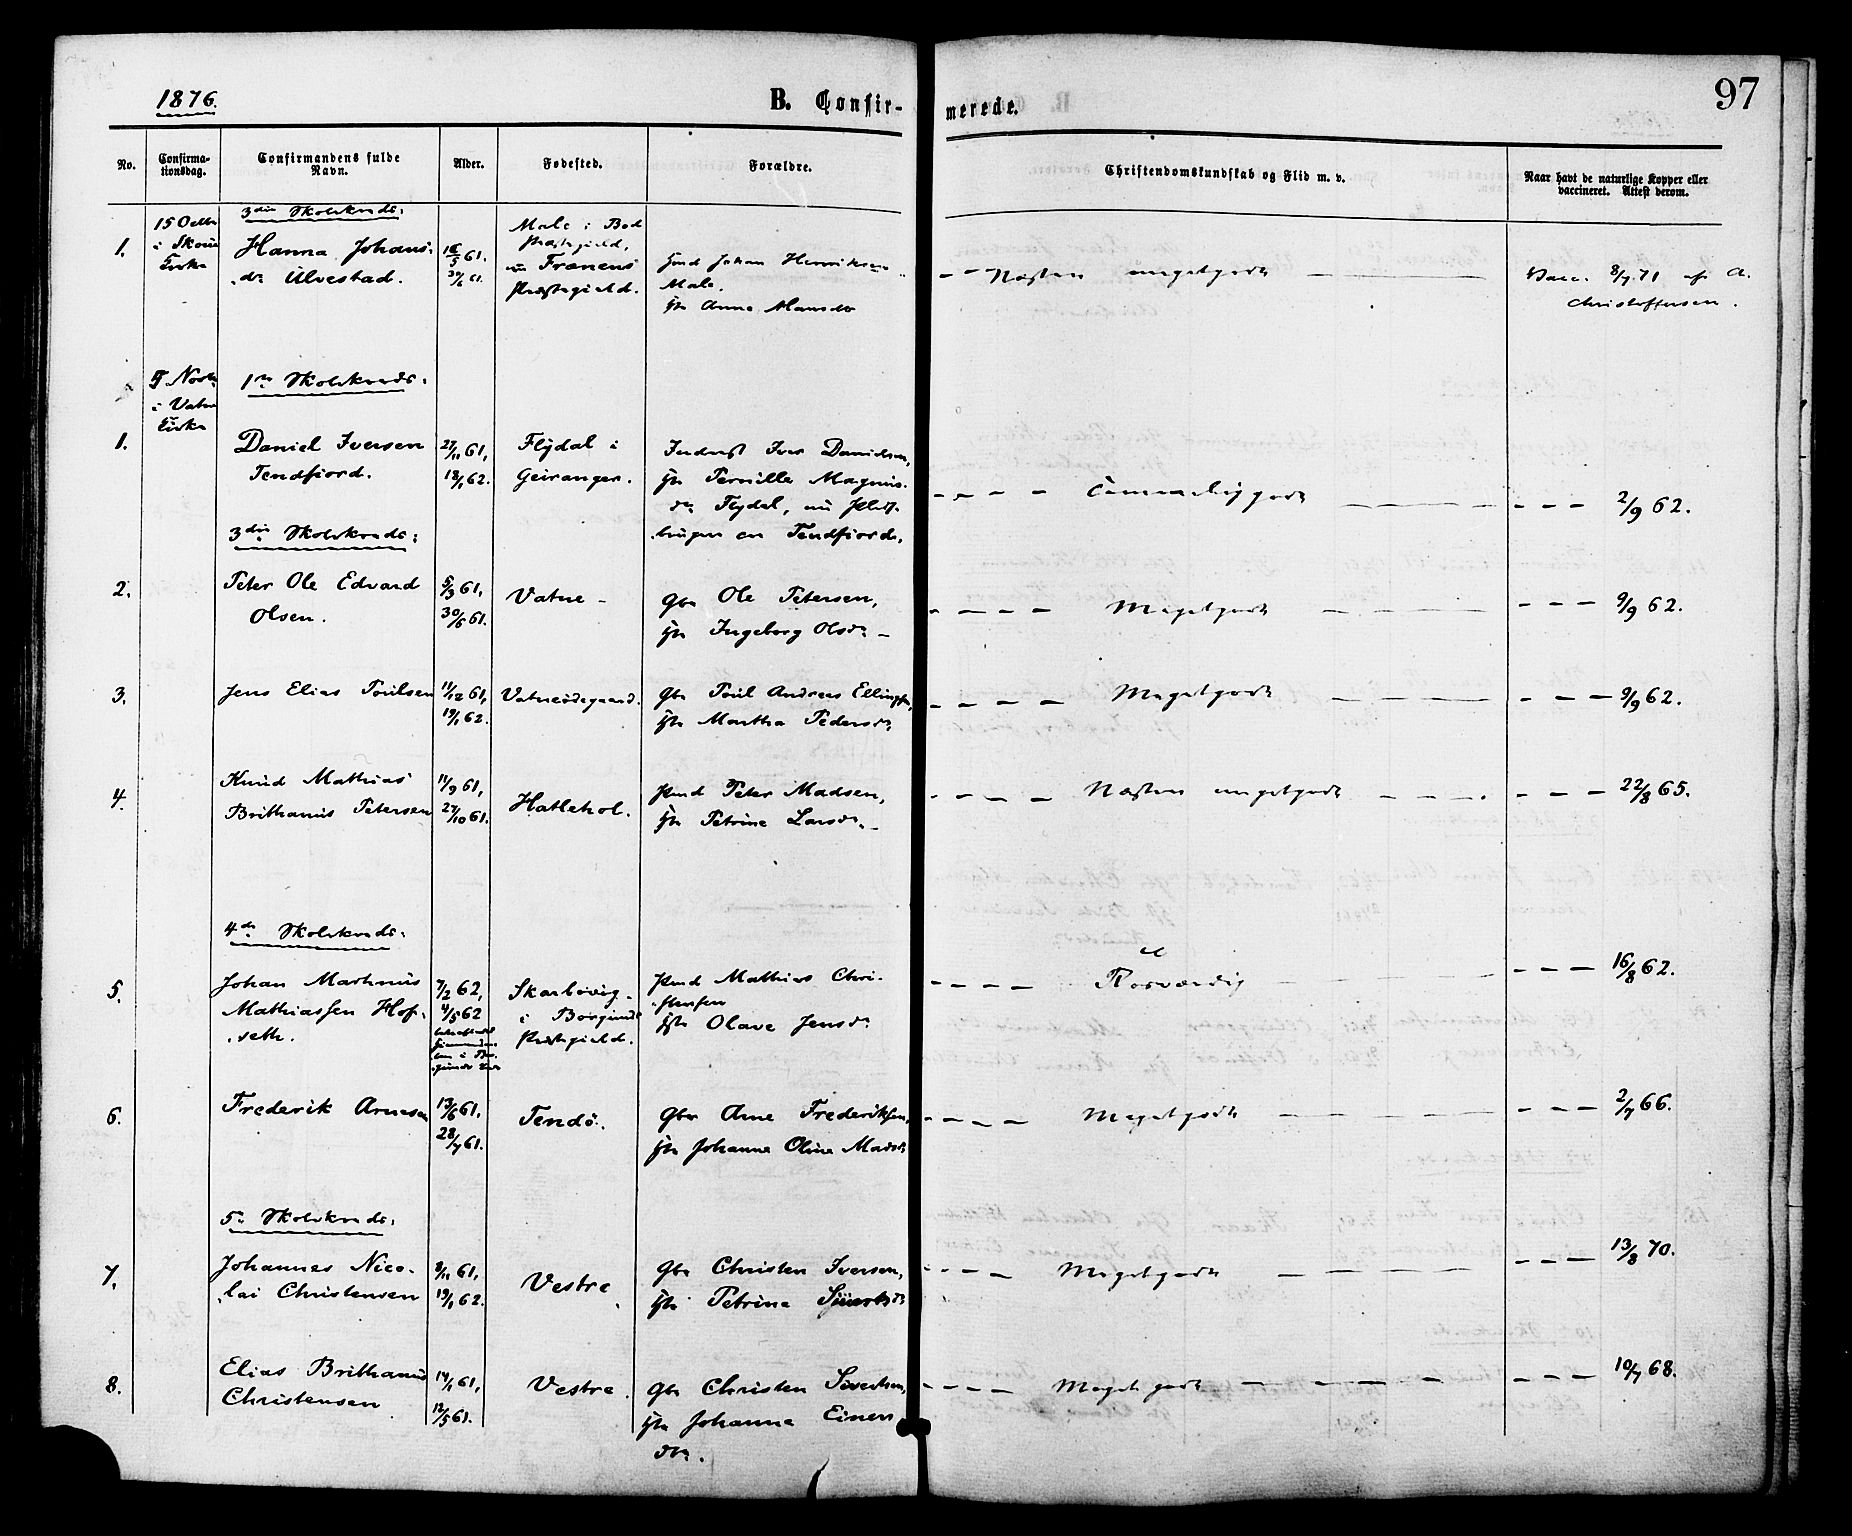 1876.
B. Confir-
merede.
97
No.
Confirma-
tionsdag.
Confirmandens fulde
Navn.
Alder.
Fødested.
Forældre.
Christendomskundskab og Flid m. v.
Naar havt de naturlige Kopper eller
vaccineret. Attest derom.
3die Skolekreds:
1.
15 Octbr
i Skou
Kirke
Hanna Johans-
dr Ulvestad.
61.
30/6 61.
Male i Bod
Præstegield,
nu Frænens
Præstegield.
Johan Henriksen
Male.
Anna Hansdr
Næsten megetgodt
Vacc. 8/7 71 af A.
Christoffersen.
5 Novbr
i Vatne
Kirke
1ste Skolekreds:
1.
Daniel Iversen
Tendfiord.
27/11 61,
18/1 62.
Flydal i
Geiranger.
Inderst Iver Danielsen,
Pernille Magnus-
dr Flydal, nu
Tendfiord.
godt
2/9 62.
3die Skolekreds:
2.
Peter Ole Edvard
Olsen.
5/3 61,
30/6 61.
Vatne
Gbr Ole Petersen,
Ingeborg Olsdr
Megetgodt
9/9 62.
3.
Jens Elias Poulsen
11/12 61,
19/1 62.
Vatneødegaard.
Gbr Poul Andreas Ellingsen,
Martha Pedersdr
Megetgodt
9/9 62.
4.
Knud Mathias
Brithanus Petersen
11/9 61,
27/10 61.
Hatlehol.
Pmd Peter Madsen,
Petrine Larsdr
Næsten megetgodt
22/8 65.
4de Skolekreds:
5.
Johan Martinus
Mathiassen Hof-
seth.
7/2 62,
4/5 62
Skarbøvig
i Borgunds
Præstegield.
Pmd Mathias Chri-
stensen
Olave Jensdr
Rosværdig
16/8 62.
6.
Frederik Arnesen
13/6 61,
28/7 61.
Tendø.
Gbr Arne Frederiksen,
Johanne Oline Madsdr
Megetgodt
2/7 66.
5te Skolekreds:
7.
Johannes Nico-
lai Christensen
61,
19/1 62.
Vestre
Gbr Christen Iversen,
Petrine Siuertsdr
Megetgodt
13/8 70.
8.
Elias Brithanus
Christensen
14/1 61,
12/5 61.
Vestre.
Gbr Christen Sivertsen,
Johanna Einers
dr.
Meget godt
10/7 68.